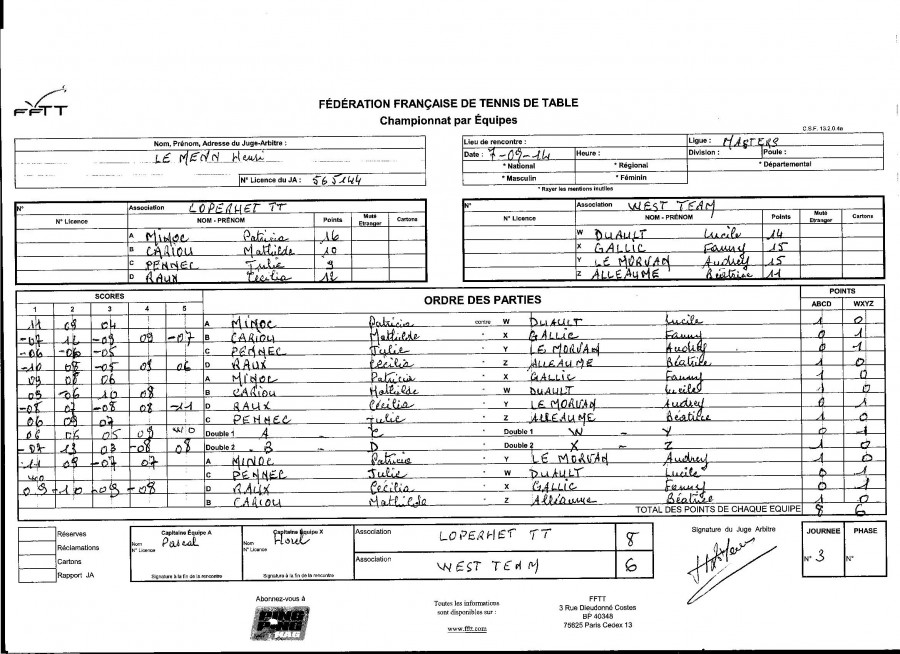 FFTT
FÉDÉRATION FRANÇAISE DE TENNIS DE TABLE
Championnat par Équipes
C.S.F. 13.2.0.4e
Nom, Prénom, Adresse du Juge-Arbitre :
LE MENN Henri
N° Licence du JA : 565144
Lieu de rencontre : Ligue : MASTERS
Date : 7-09-14 Heure : Division : Poule :
* National * Régional * Départemental
* Masculin * Féminin
* Rayer les mentions inutiles
N° Association LOPERHET TT
N° Licence NOM - PRÉNOM Points Muté Etranger Cartons
A MINOC Patricia 16
B CARIOU Mathilde 10
C PENNEC Julie 9
D RAUX Cécilia 12
N° Association WEST TEAM
N° Licence NOM - PRÉNOM Points Muté Etranger Cartons
W DUAULT Lucile 14
X GALLIC Fanny 15
Y LE MORVAN Audrey 15
Z ALLEAUME Béatrice 11
SCORES ORDRE DES PARTIES POINTS
1 2 3 4 5 ABCD WXYZ
11 09 04 A MINOC Patricia contre W DUAULT Lucile 1 0
-07 12 -09 09 -07 B CARIOU Mathilde " X GALLIC Fanny 0 1
-06 -06 -05 C PENNEC Julie " Y LE MORVAN Audrey 0 1
-10 08 -05 09 06 D RAUX Cécilia " Z ALLEAUME Béatrice 1 0
09 08 06 A MINOC Patricia " X GALLIC Fanny 1 0
05 -06 10 08 B CARIOU Mathilde " W DUAULT Lucile 1 0
-08 07 -08 08 -11 D RAUX Cécilia " Y LE MORVAN Audrey 0 1
06 09 07 C PENNEC Julie " Z ALLEAUME Béatrice 1 0
06 06 05 09 WO Double 1 A - C Double 1 W - Y 0 1
-07 13 03 -08 08 Double 2 B - D Double 2 X - Z 1 0
11 09 -07 07 A MINOC Patricia " Y LE MORVAN Audrey 1 0
WO C PENNEC Julie " W DUAULT Lucile 0 1
09 -10 -09 -08 D RAUX Cécilia " X GALLIC Fanny 0 1
B CARIOU Mathilde " Z Alléaume Béatrise 1 0
TOTAL DES POINTS DE CHAQUE EQUIPE 8 6
Réserves
Réclamations
Cartons
Rapport JA
Capitaine Équipe A
Nom Pascal
N° Licence
Signature à la fin de la rencontre
Capitaine Équipe X
Nom Horel
N° Licence
Signature à la fin de la rencontre
Association LOPERHET TT 8
Association WEST TEAM 6
Signature du Juge Arbitre
JOURNEE PHASE
N° 3 N°
Abonnez-vous à
PING PONG MAG
Toutes les informations
sont disponibles sur :
www.fftt.com
FFTT
3 Rue Dieudonné Costes
BP 40348
75625 Paris Cedex 13